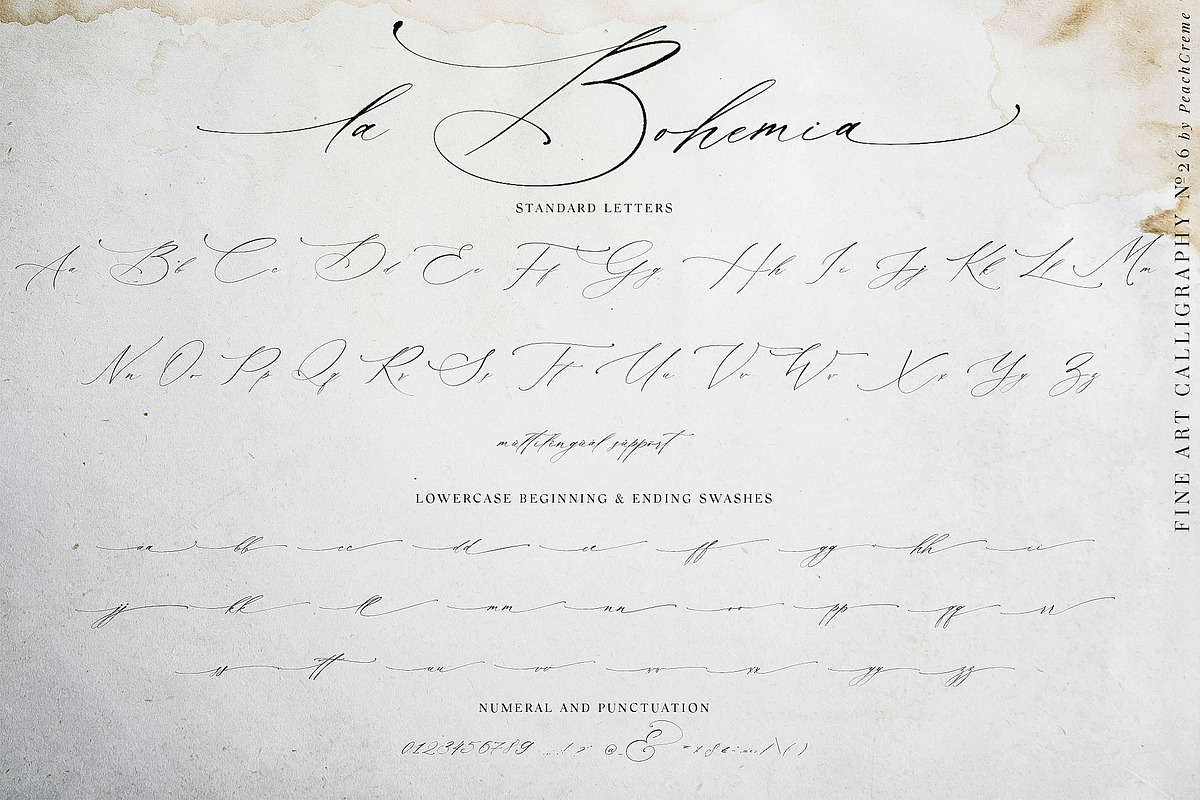 la Bohemia
STANDARD LETTERS
Aa Bb Cc Dd Ee Ff Gg Hh Ii Jj Kk Ll Mm
Nn Oo Pp Qq Rr Ss Tt Uu Vv Ww Xx Yy Zz
multilingual support
LOWERCASE BEGINNING & ENDING SWASHES
aa bb cc dd ee ff gg hh ii
jj kk ll mm nn oo pp qq rr
ss tt uu vv ww xx yy zz
NUMERAL AND PUNCTUATION
0123456789 @ &
FINE ART CALLIGRAPHY Nº26 by PeachCreme